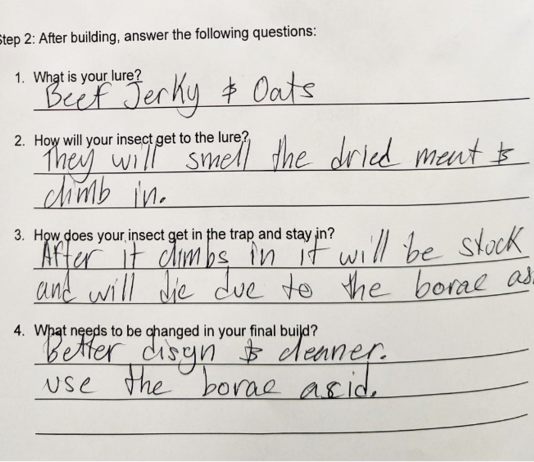 Step 2: After building, answer the following questions:
1. What is your lure?
Beef Jerky & Oats
2. How will your insect get to the lure?
They will smell the dried meut &
climb in.
3. How does your insect get in the trap and stay in?
After it climbs in it will be stock
and will die due to the borae as
4. What needs to be changed in your final build?
Better disgn & cleaner.
use the borae acid.